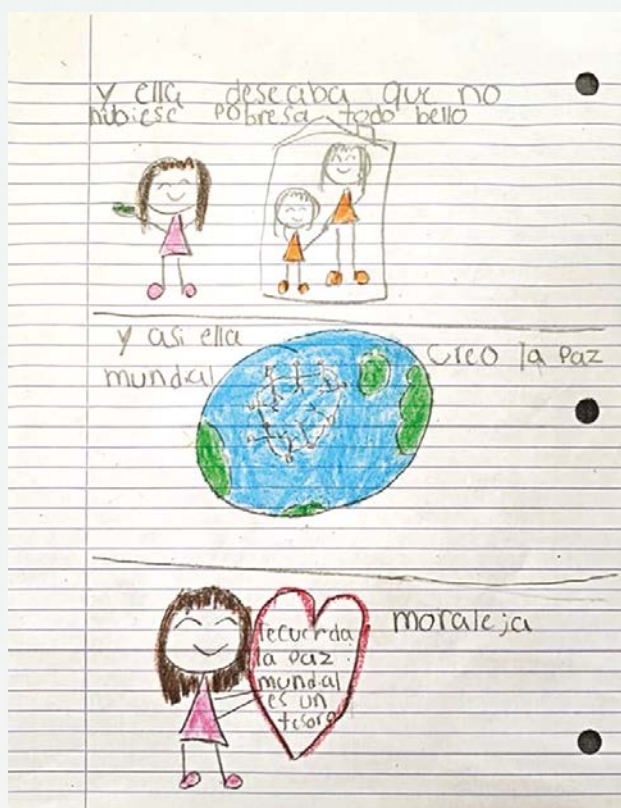 y ella deseaba que no
hubiese pobresa todo bello
y asi ella creo la paz
mundal
moraleja
recuerda
la paz
mundal
es un
tesoro